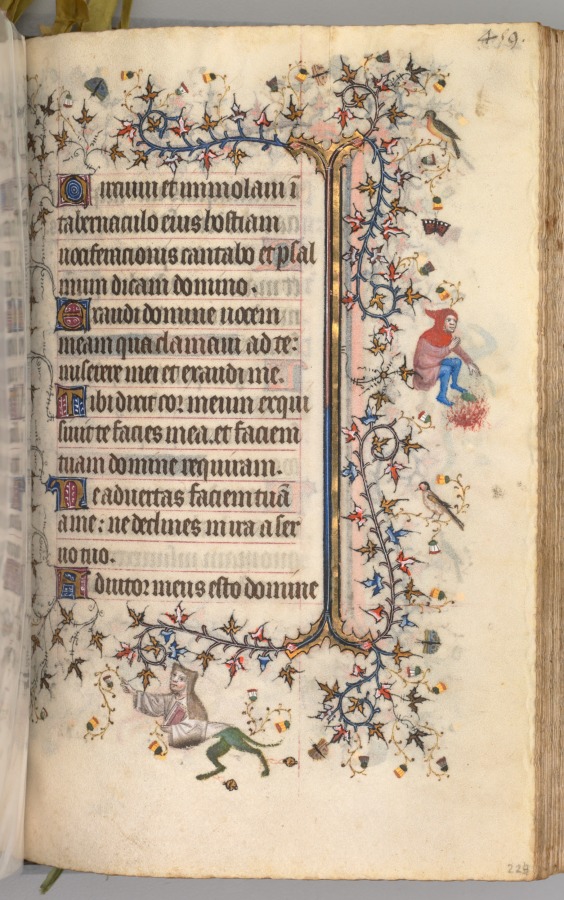 459.
Circuivi et immolavi i
tabernaculo eius hostiam
vociferacionis cantabo et psal
mum dicam domino.
Exaudi domine vocem
meam qua clamavi ad te:
miserere mei et exaudi me.
Tibi dixit cor meum exqui
sivit te facies mea. et faciem
tuam domine requiram.
Ne advertas faciem tuā
a me: ne declines in ira a ser
vo tuo.
Adiutor meus esto domine
229